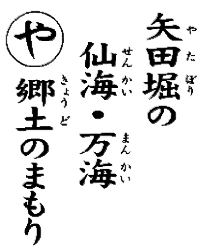 矢田堀の
仙海・万海
郷土のまもり
や
やたぼり
せんかい
まんかい
きょうど